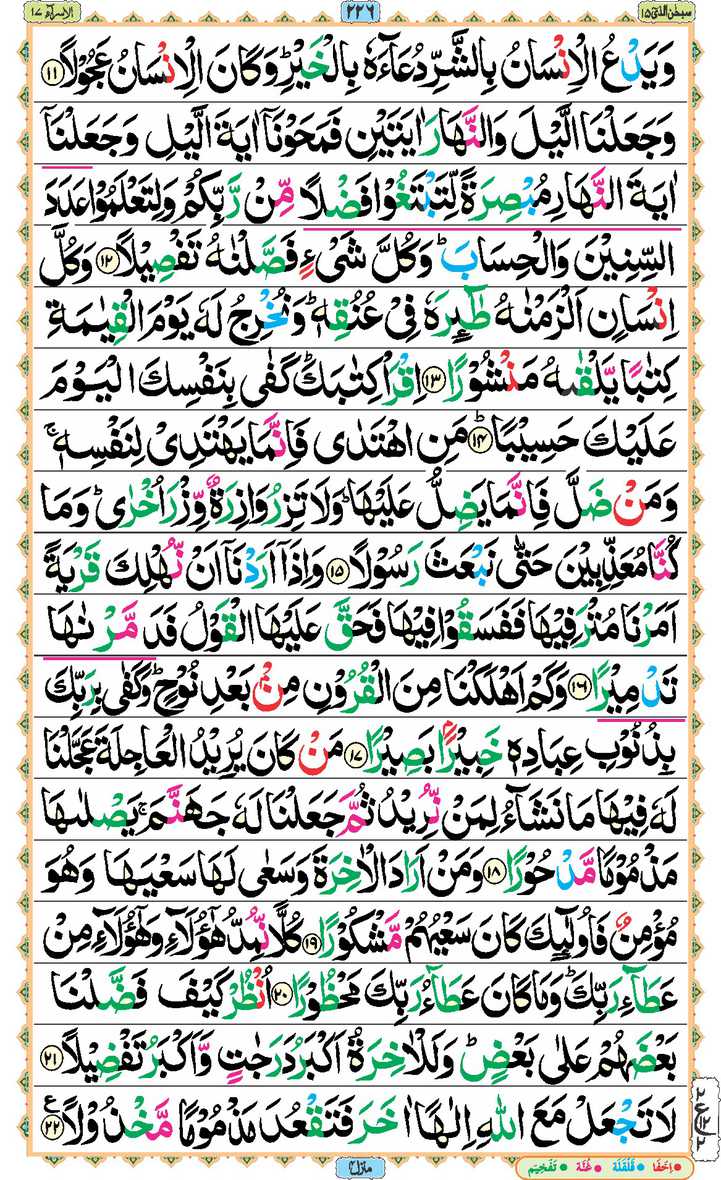 سبحٰن الذیٓ ١٥
٢٢٦
الاسرآء ١٧
وَيَدْعُ الْاِنْسَانُ بِالشَّرِّ دُعَآءَهٗ بِالْخَيْرِ ؕ وَكَانَ الْاِنْسَانُ عَجُوْلًا ١١
وَجَعَلْنَا الَّيْلَ وَالنَّهَارَ اٰيَتَيْنِ فَمَحَوْنَاۤ اٰيَةَ الَّيْلِ وَجَعَلْنَاۤ
اٰيَةَ النَّهَارِ مُبْصِرَةً لِّتَبْتَغُوْا فَضْلًا مِّنْ رَّبِّكُمْ وَلِتَعْلَمُوْا عَدَدَ
السِّنِيْنَ وَالْحِسَابَ ؕ وَكُلَّ شَیْءٍ فَصَّلْنٰهُ تَفْصِيْلًا ١٢ وَكُلَّ
اِنْسَانٍ اَلْزَمْنٰهُ طٰٓئِرَهٗ فِیْ عُنُقِهٖ ؕ وَنُخْرِجُ لَهٗ يَوْمَ الْقِيٰمَةِ
كِتٰبًا يَّلْقٰىهُ مَنْشُوْرًا ١٣ اِقْرَاْ كِتٰبَكَ ؕ كَفٰى بِنَفْسِكَ الْيَوْمَ
عَلَيْكَ حَسِيْبًا ؕ ١٤ مَنِ اهْتَدٰى فَاِنَّمَا يَهْتَدِیْ لِنَفْسِهٖ ۚ
وَمَنْ ضَلَّ فَاِنَّمَا يَضِلُّ عَلَيْهَا ؕ وَلَا تَزِرُ وَازِرَةٌ وِّزْرَ اُخْرٰى ؕ وَمَا
كُنَّا مُعَذِّبِيْنَ حَتّٰى نَبْعَثَ رَسُوْلًا ١٥ وَاِذَاۤ اَرَدْنَاۤ اَنْ نُّهْلِكَ قَرْيَةً
اَمَرْنَا مُتْرَفِيْهَا فَفَسَقُوْا فِيْهَا فَحَقَّ عَلَيْهَا الْقَوْلُ فَدَمَّرْنٰهَا
تَدْمِيْرًا ١٦ وَكَمْ اَهْلَكْنَا مِنَ الْقُرُوْنِ مِنْۢ بَعْدِ نُوْحٍ ؕ وَكَفٰى بِرَبِّكَ
بِذُنُوْبِ عِبَادِهٖ خَبِيْرًۢا بَصِيْرًا ١٧ مَنْ كَانَ يُرِيْدُ الْعَاجِلَةَ عَجَّلْنَا
لَهٗ فِيْهَا مَا نَشَآءُ لِمَنْ نُّرِيْدُ ثُمَّ جَعَلْنَا لَهٗ جَهَنَّمَ ۚ يَصْلٰىهَا
مَذْمُوْمًا مَّدْحُوْرًا ١٨ وَمَنْ اَرَادَ الْاٰخِرَةَ وَسَعٰى لَهَا سَعْيَهَا وَهُوَ
مُؤْمِنٌ فَاُولٰٓئِكَ كَانَ سَعْيُهُمْ مَّشْكُوْرًا ١٩ كُلًّا نُّمِدُّ هٰٓؤُلَآءِ وَهٰٓؤُلَآءِ مِنْ
عَطَآءِ رَبِّكَ ؕ وَمَا كَانَ عَطَآءُ رَبِّكَ مَحْظُوْرًا ٢٠ اُنْظُرْ كَيْفَ فَضَّلْنَا
بَعْضَهُمْ عَلٰى بَعْضٍ ؕ وَلَلْاٰخِرَةُ اَكْبَرُ دَرَجٰتٍ وَّاَكْبَرُ تَفْضِيْلًا ٢١
لَا تَجْعَلْ مَعَ اللّٰهِ اِلٰهًا اٰخَرَ فَتَقْعُدَ مَذْمُوْمًا مَّخْذُوْلًا ٢٢ ع
منزل ٤
اِخْفَا قَلْقَلَة غُنَّة تَفْخِيْم